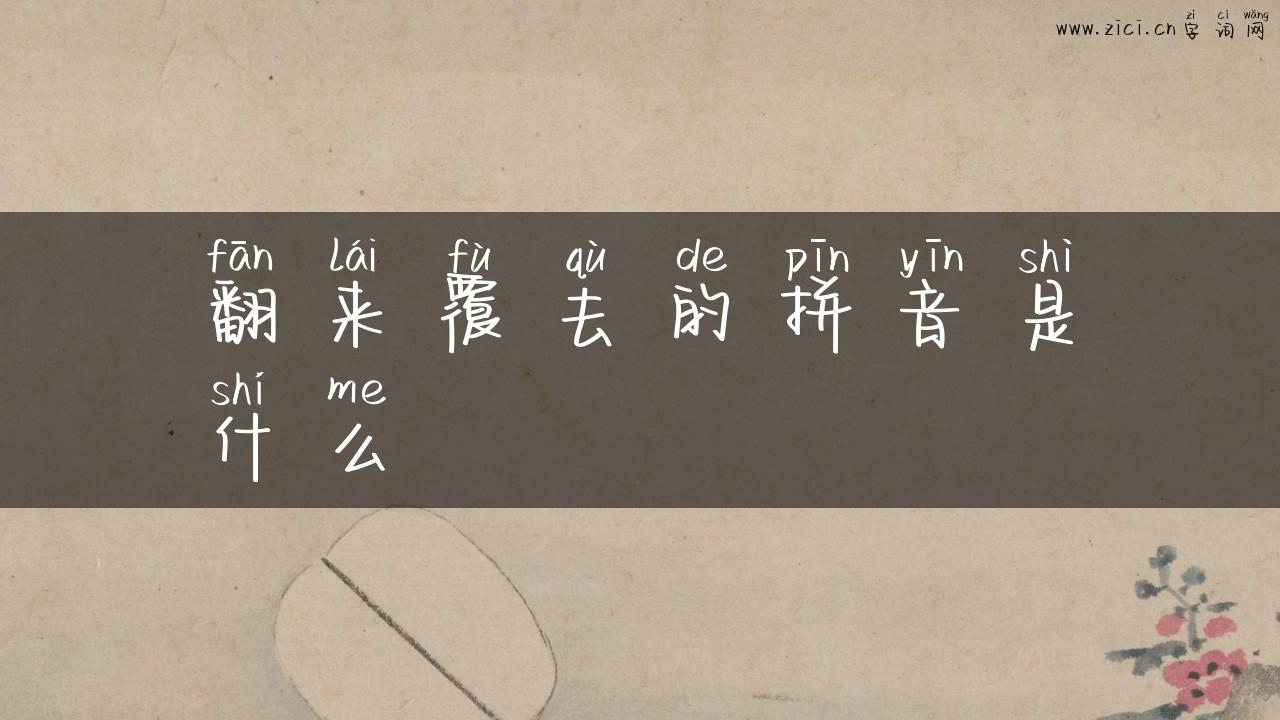 zì cí wǎng
www.zici.cn字词网
fān lái fù qù de pīn yīn shì
翻来覆去的拼音是
shí me
什么